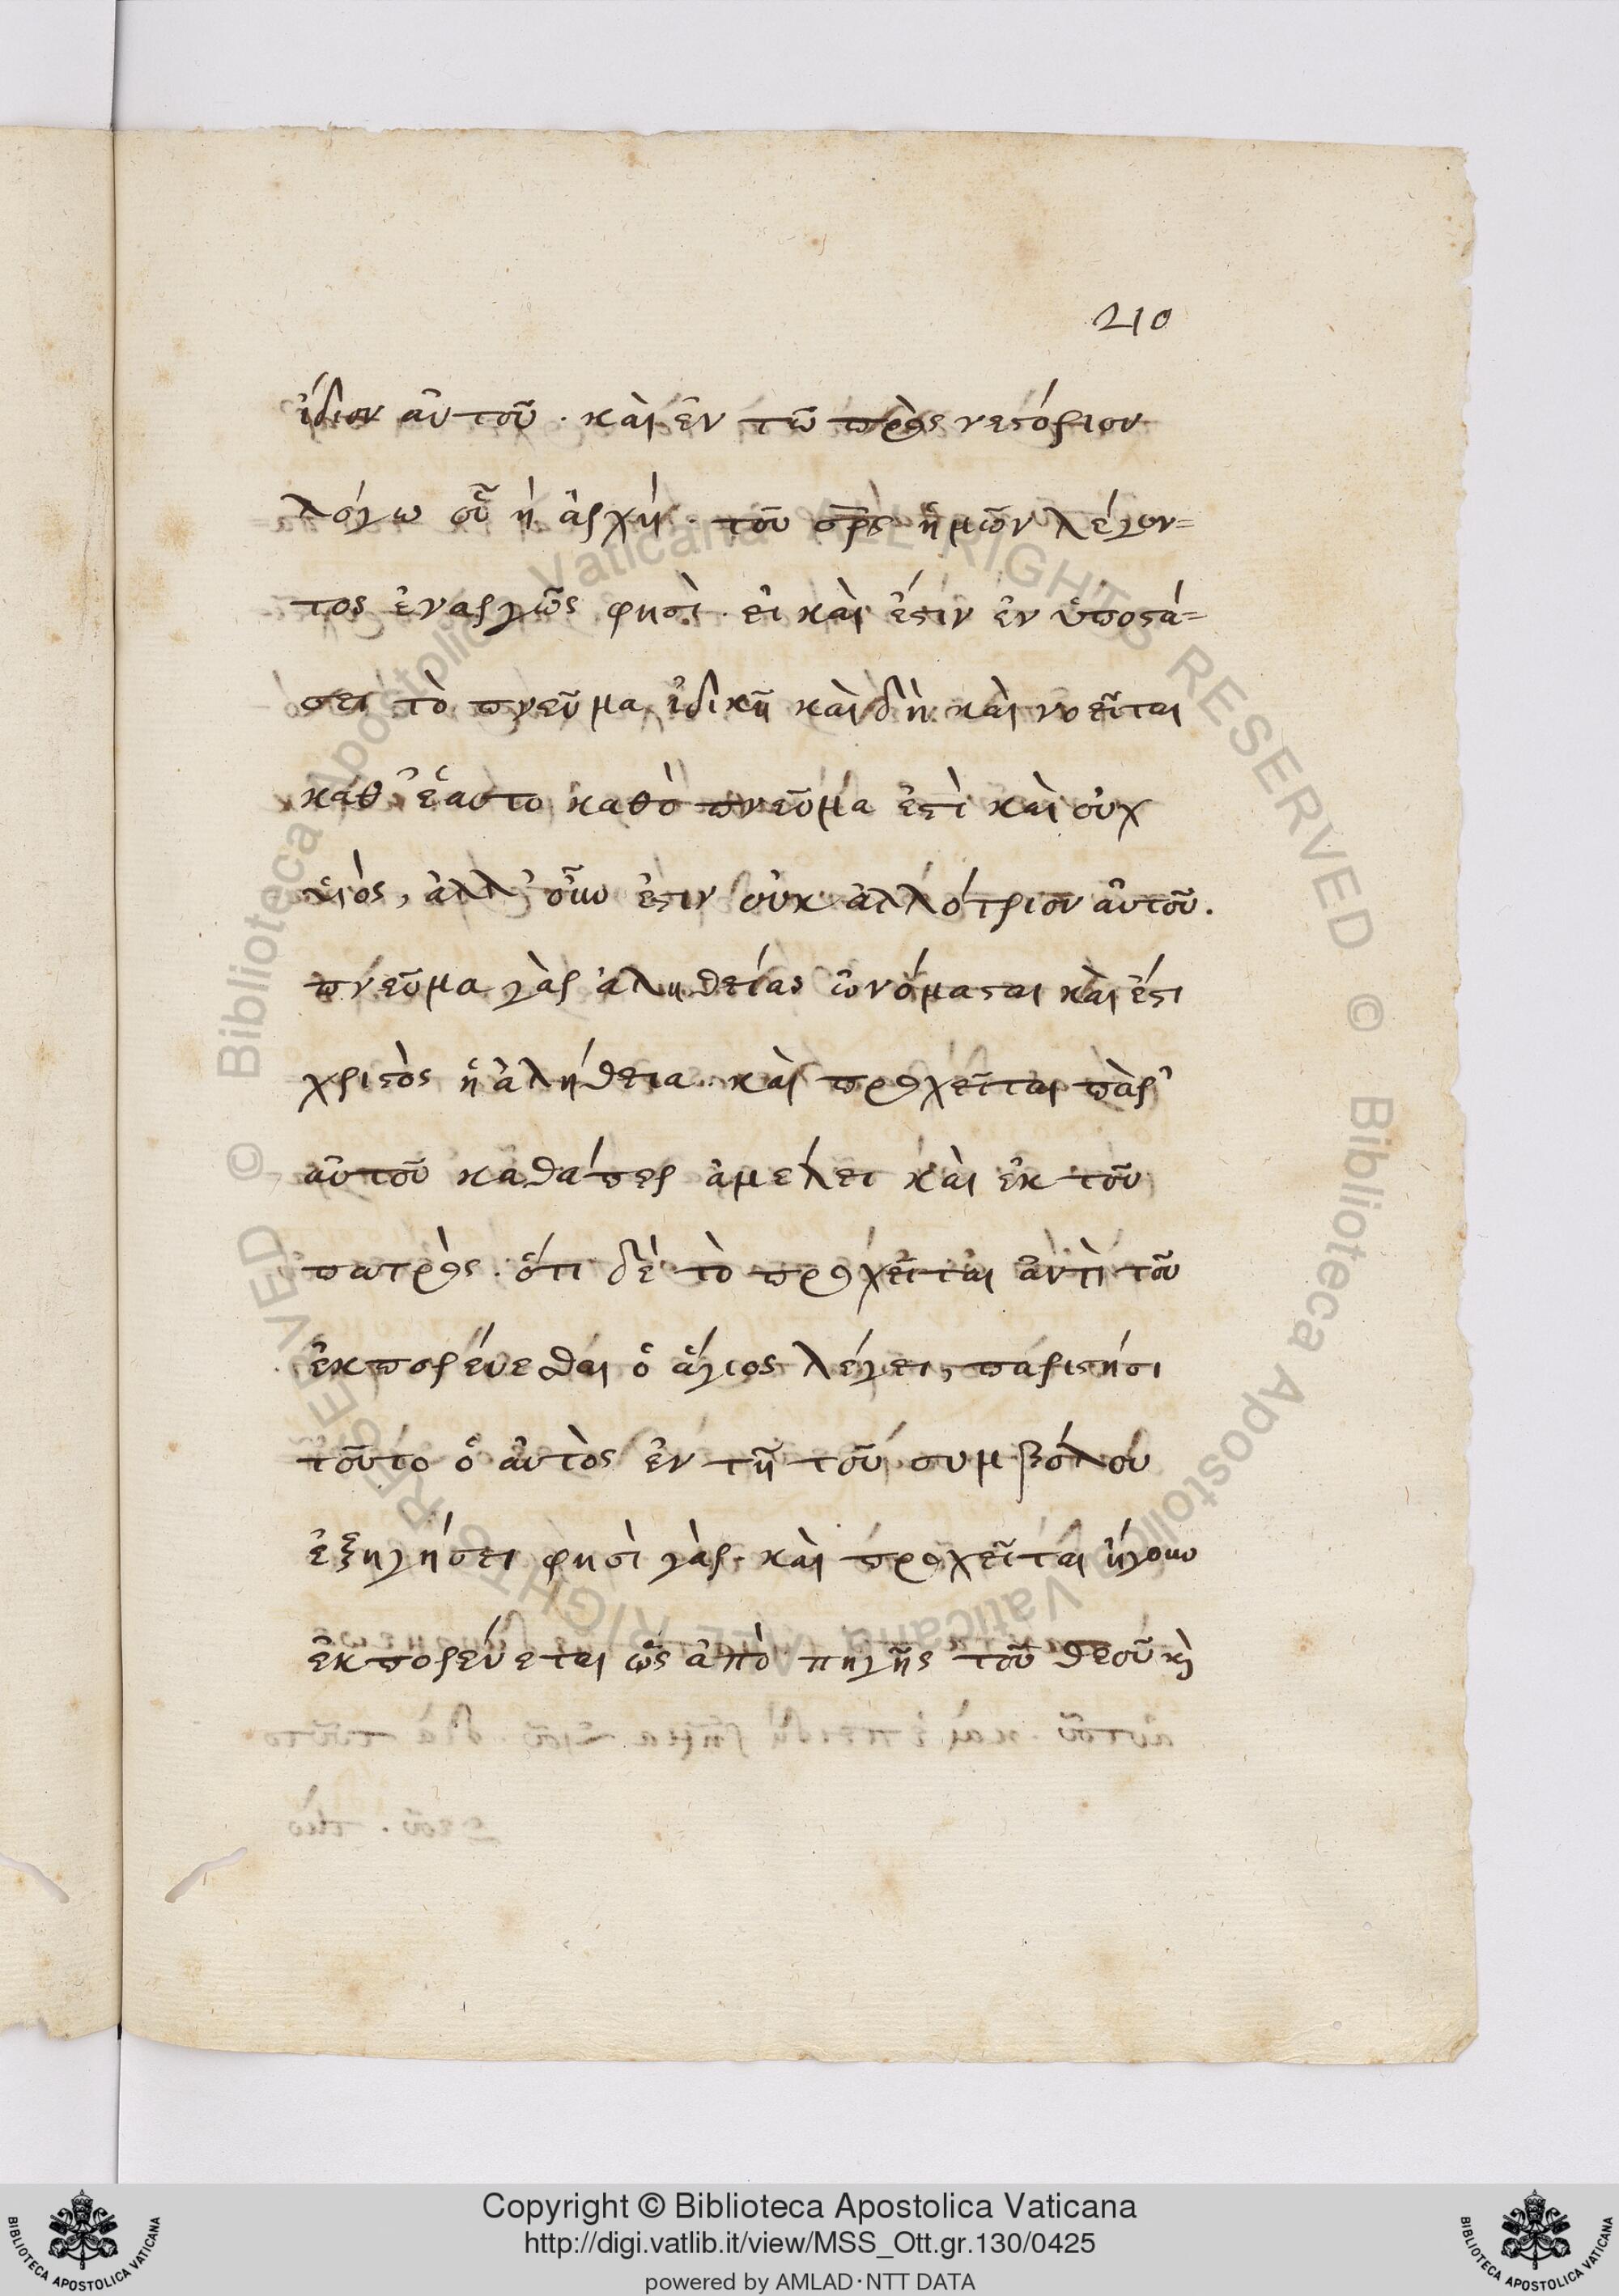 210
ἴδιον αὐτοῦ · καὶ ἐν τῶ πρὸς νεστόριον
λόγω οὗ ἡ ἀρχή · τοῦ σρ̅ς ἡμῶν λέγον=
τος ἐναργῶς φησὶ · εἰ καὶ ἔστιν ἐν ὑποστά=
σει τὸ πνεῦμα ἰδικῆ καὶ δὴ καὶ νοεῖται
καθ' ἑαυτο καθὸ πνεῦμά ἐστὶ καὶ οὐχ
υἱὸς, ἀλλ' οὖν ἐστιν οὐκ ἀλλότριον αὐτοῦ.
πνεῦμα γὰρ ἀληθείας ὠνόμασται καὶ ἔστι
χριστὸς ἡ ἀλήθεια · καὶ προχεῖται πὰρ'
αὐτοῦ καθάπερ ἀμέλει καὶ ἐκ τοῦ
πατρὸς · ὅτι δὲ τὸ προχεῖται ἀντὶ τοῦ
ἐκπορέυεσθαι ὁ ἅγιος λέγει, παρίστησι
τοῦτο ὁ αὐτὸς ἐν τῆ τοῦ συμβόλου
ἐξηγήσει φησὶ γὰρ · καὶ προχεῖται ἤγουν
ἐκπορέυεται ὡς ἀπὸ πηγῆς τοῦ θεοῦ κὶ
Copyright © Biblioteca Apostolica Vaticana
http://digi.vatlib.it/view/MSS_Ott.gr.130/0425
powered by AMLAD·NTT DATA
© Biblioteca Apostolica Vaticana ALL RIGHTS RESERVED
© Biblioteca Apostolica Vaticana ALL RIGHTS RESERVED
BIBLIOTECA APOSTOLICA VATICANA
BIBLIOTECA APOSTOLICA VATICANA